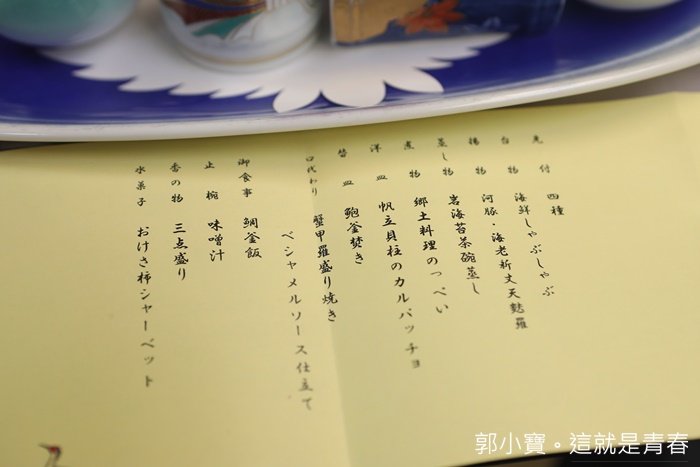 先付 四種
台物 海鮮しゃぶしゃぶ
揚物 河豚・海老新丈天麩羅
蒸し物 岩海苔茶碗蒸し
煮物 郷土料理のっぺい
洋皿 帆立貝柱のカルパッチョ
替皿 鮑釜焚き
口代わり 蟹甲羅盛り焼き
ベシャメルソース仕立て
御食事 鯛釜飯
止椀 味噌汁
香の物 三点盛り
水菓子 おけさ柿シャーベット
郭小寶。這就是青春